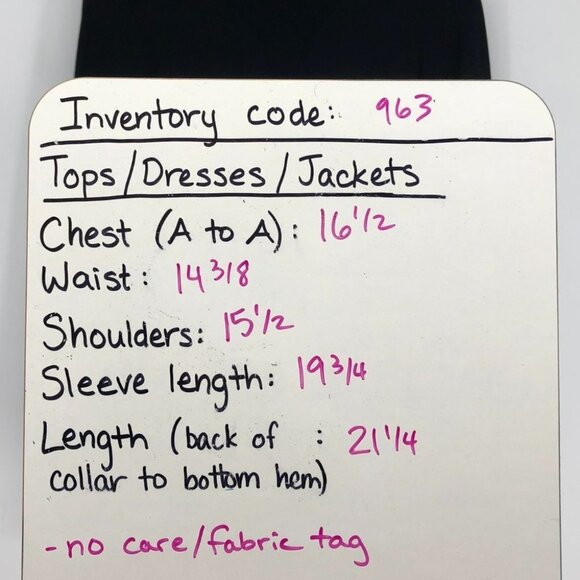 Inventory code: 963
Tops/Dresses/Jackets
Chest (A to A): 16 1/2
Waist: 14 3/8
Shoulders: 15 1/2
Sleeve length: 19 3/4
Length (back of : 21 1/4
collar to bottom hem)
-no care/fabric tag